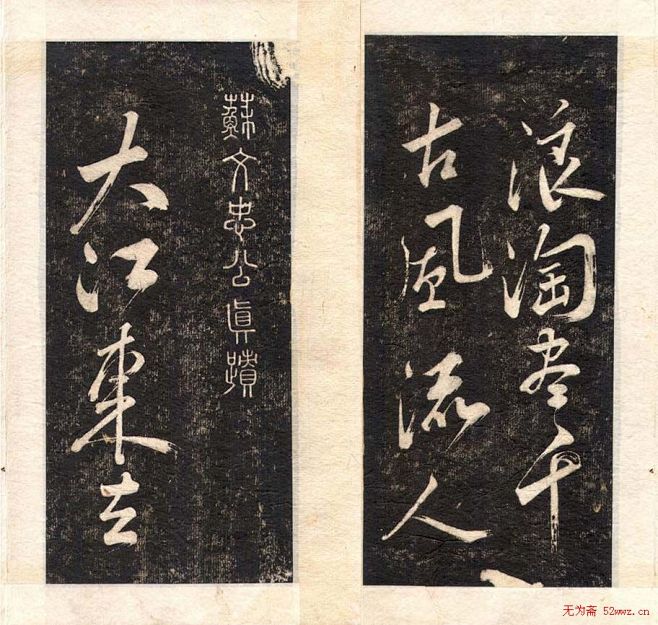 蘇文忠公眞蹟
大江東去
浪淘盡千
古風流人
无为斋 52wwz.cn